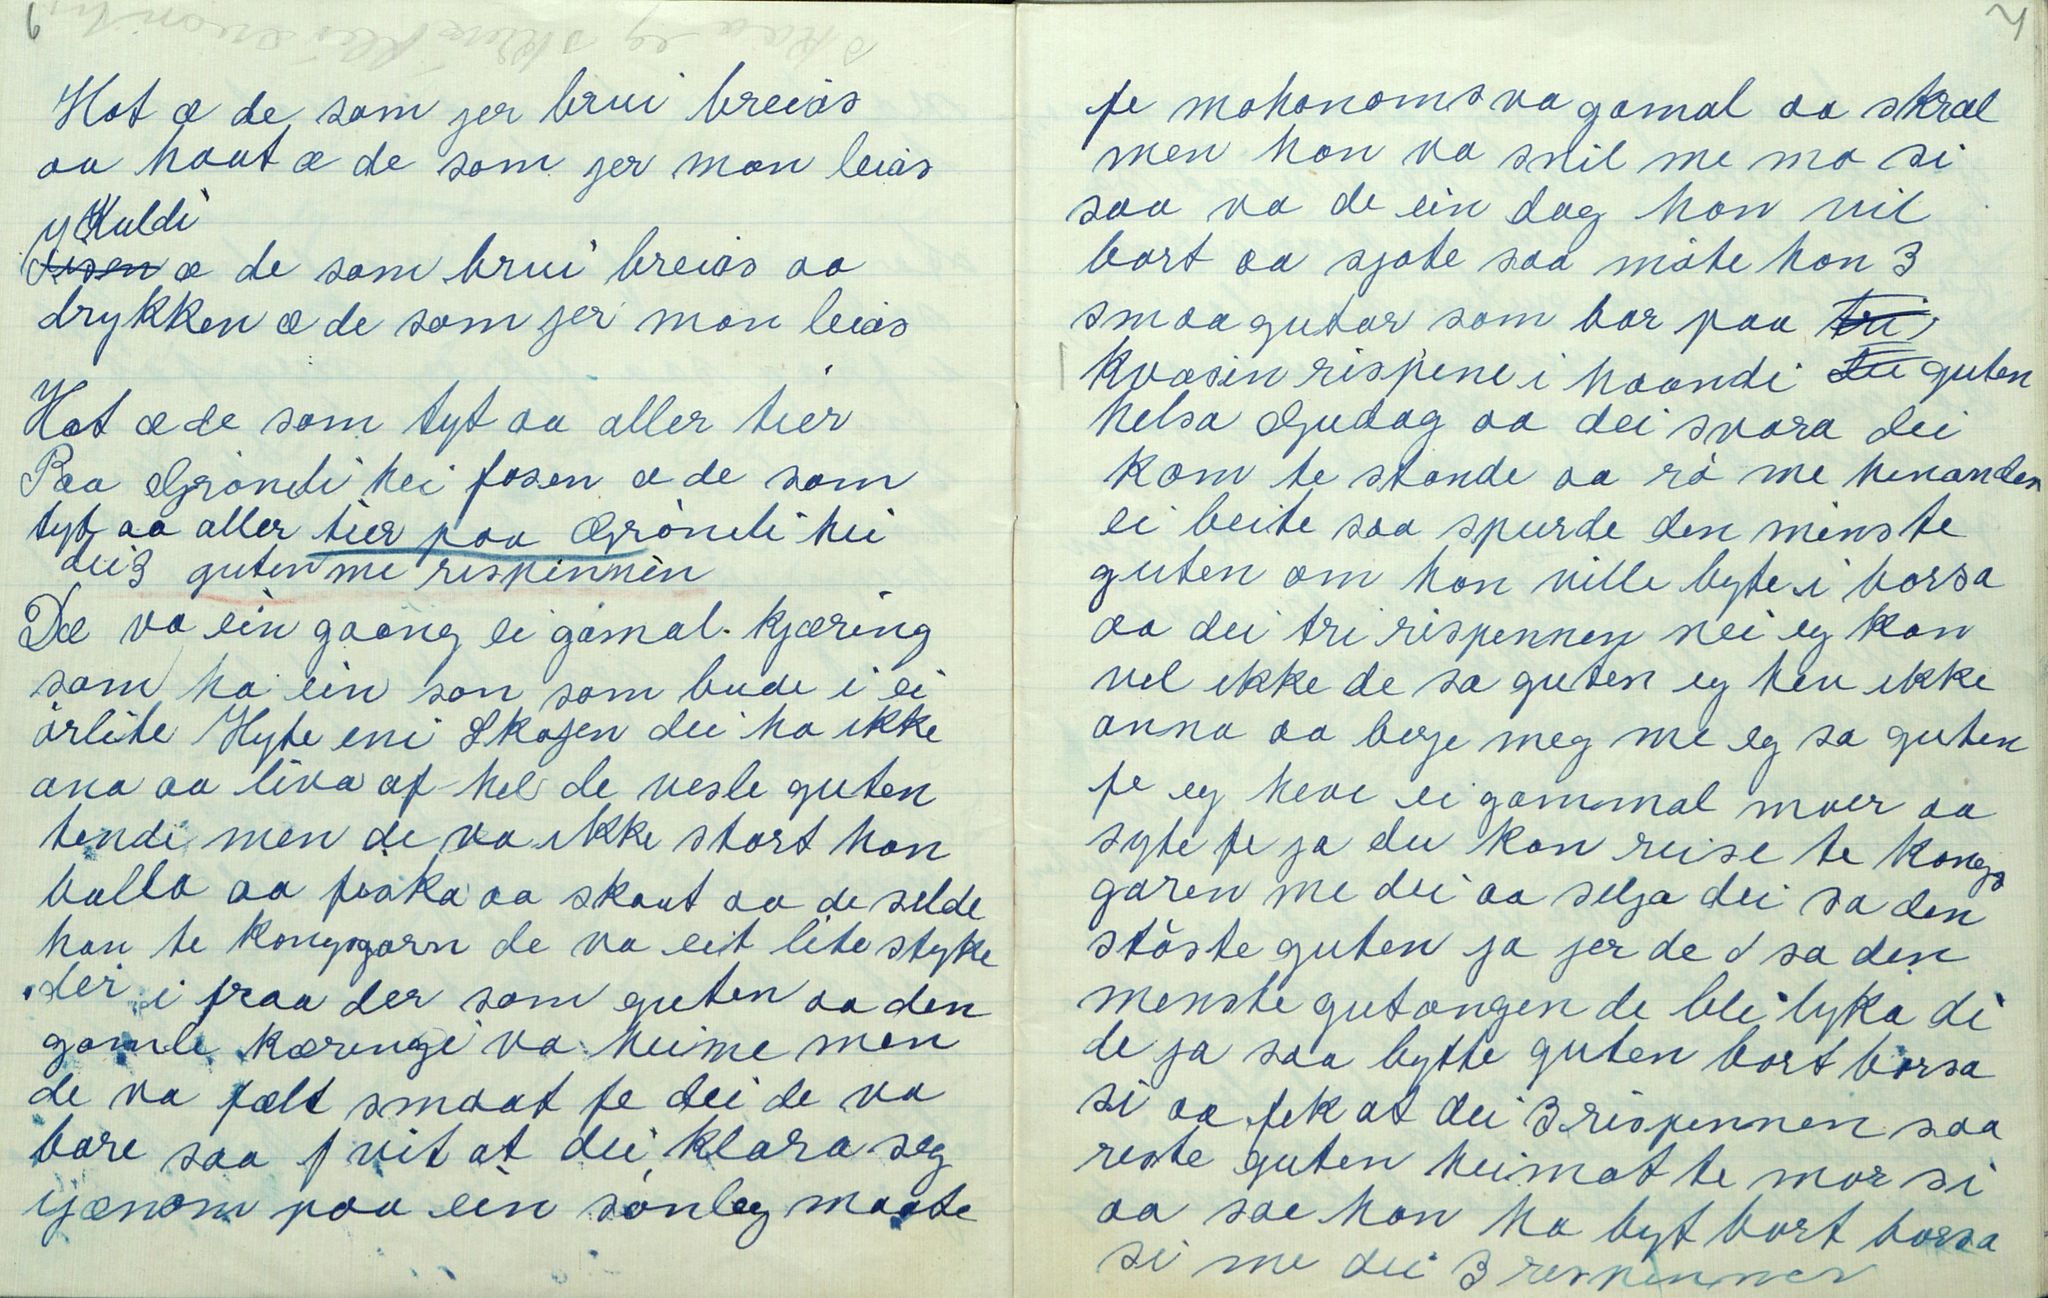 6
Hot æ de som jer brui breias
aa haat æ de som jer mon leias
y Kuldi
æ de som brui breias aa
drykken æ de som jer mon leias
Hot æ de som tyt aa aller tier
Paa Gröndi hei fosen æ de som
tyt aa aller tier paa Gröndi hei
dei 3 guten me rispinnin
Dæ va ein gaang ei gamal kjæring
som ha ein son som bude i ei
örlite Hyte eni Skogen dei ha ikke
ana aa liva af hel de vesle guten
tendi men de va ikke stort han
balla aa feska aa skaut aa de selde
han te kongsgarn de va eit lite styke
der i fraa der som guten aa den
gamle kæringi va heime men
de va fælt smaat fe dei de va
bare saa f vit at dei klara seg
igænom paa ein sönleg maate
7
fe mohonoms va gamal aa skral
men han va snil me mo si
saa va de ein dag han vil
bort aa sjote saa möte han 3
smaa gutar som bar paa
kvæsin rispene i haandi guten
helsa Gudag aa dei svara dei
kom te stande aa rö me henanden
ei beite saa spurde den minste
guten om han ville byte i borsa
aa dei tri rispennen nei eg kan
vel ikke de sa guten eg hev ikke
anna aa berje meg me eg sa guten
fe eg heve ei gammal moer aa
syte fe ja du kan reise te kongs
garen me dei aa selja dei sa den
stöste guten ja jer de d sa den
menste gutongen de bli lyka di
de ja saa bytte guten bort borsa
si aa fek at dei 3 rispennen saa
reste guten heimat te mor si
aa sae han ha byt bort borsa
si me dei 3 respenner